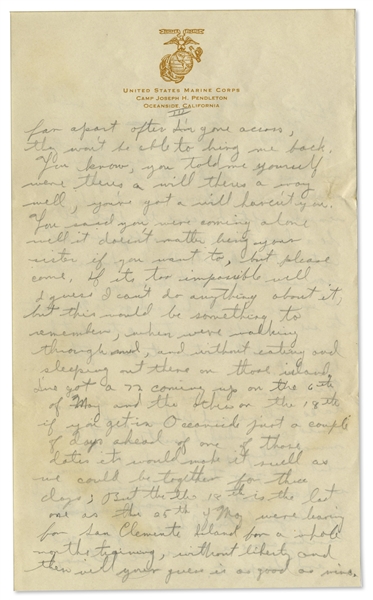 UNITED STATES MARINE CORPS
CAMP JOSEPH H. PENDLETON
OCEANSIDE, CALIFORNIA
III
far apart after I'm gone across,
they won't be able to bring me back.
You know, you told me yourself
were theres a will theres a way
well, you've got a will haven't you.
You said you were coming alone
well it doesn't matter bring your
sister if you want to, but please
come, if its too impossible well
I guess I can't do anything about it,
but this would be something to
remember, when we're walking
through mud, and without eating and
sleeping out there in those islands
I've got a 72 coming up on the 6th
of May and the other on the 18th
if you get in Oceanside just a couple
of days ahead of one of those
dates it would make it swell as
we could be together for three
days, But the 18th is the last
one as the 25th of May were leaving
for San Clemente Island for a whole
months training, without liberty and
then well your guess is as good as mine.